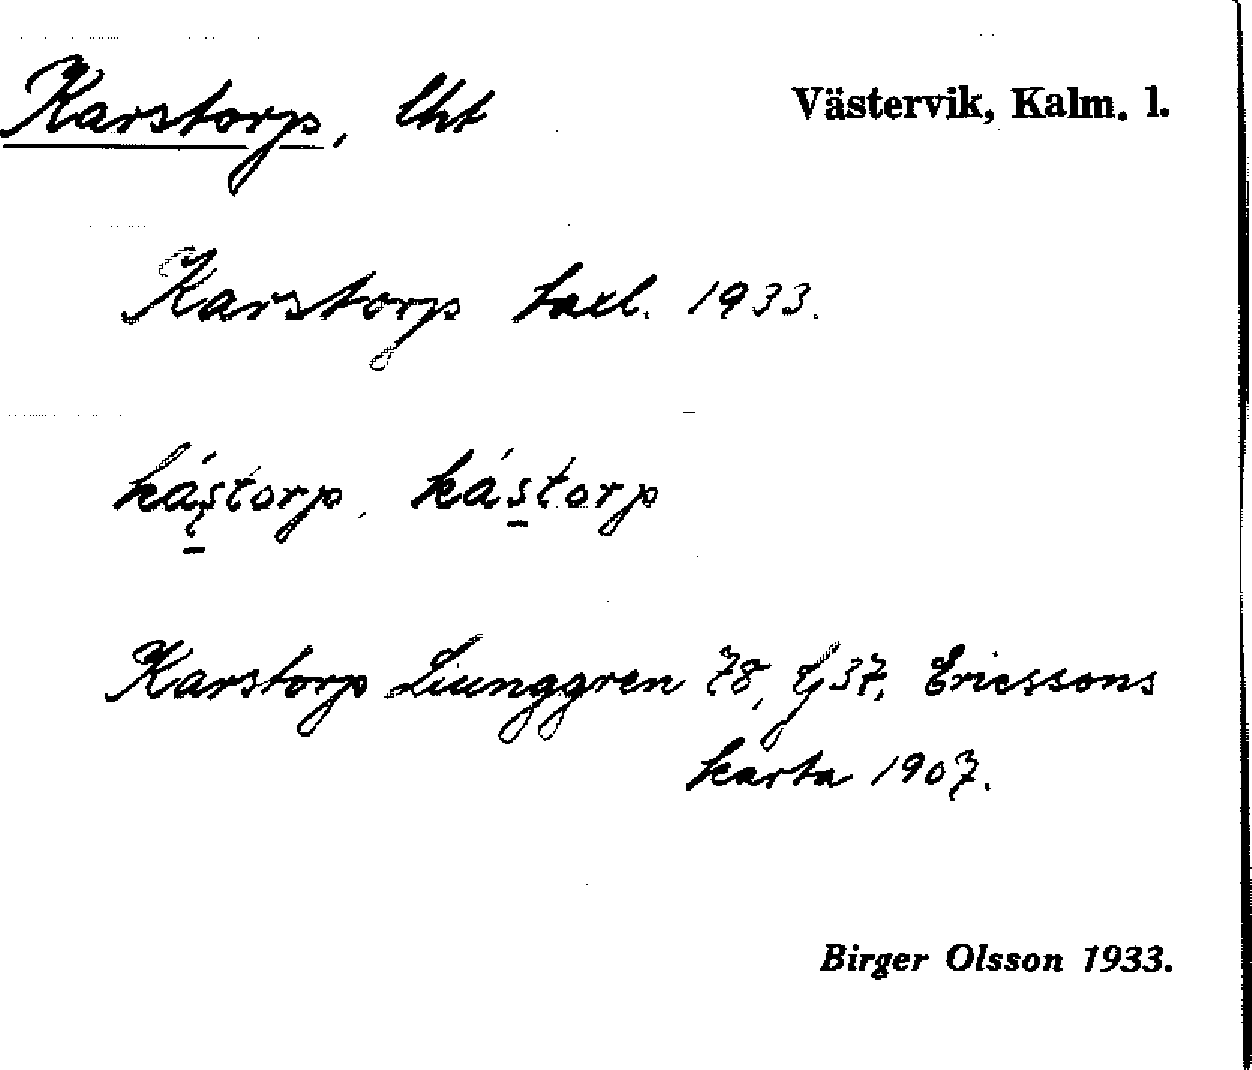 Karstorp, lht Västervik, Kalm. l.
Karstorp taxl. 1933.
kás̱torp, kás̱torp
Karstorp Liunggren 78, Ej 37, Ericssons
karta 1907.
Birger Olsson 1933.